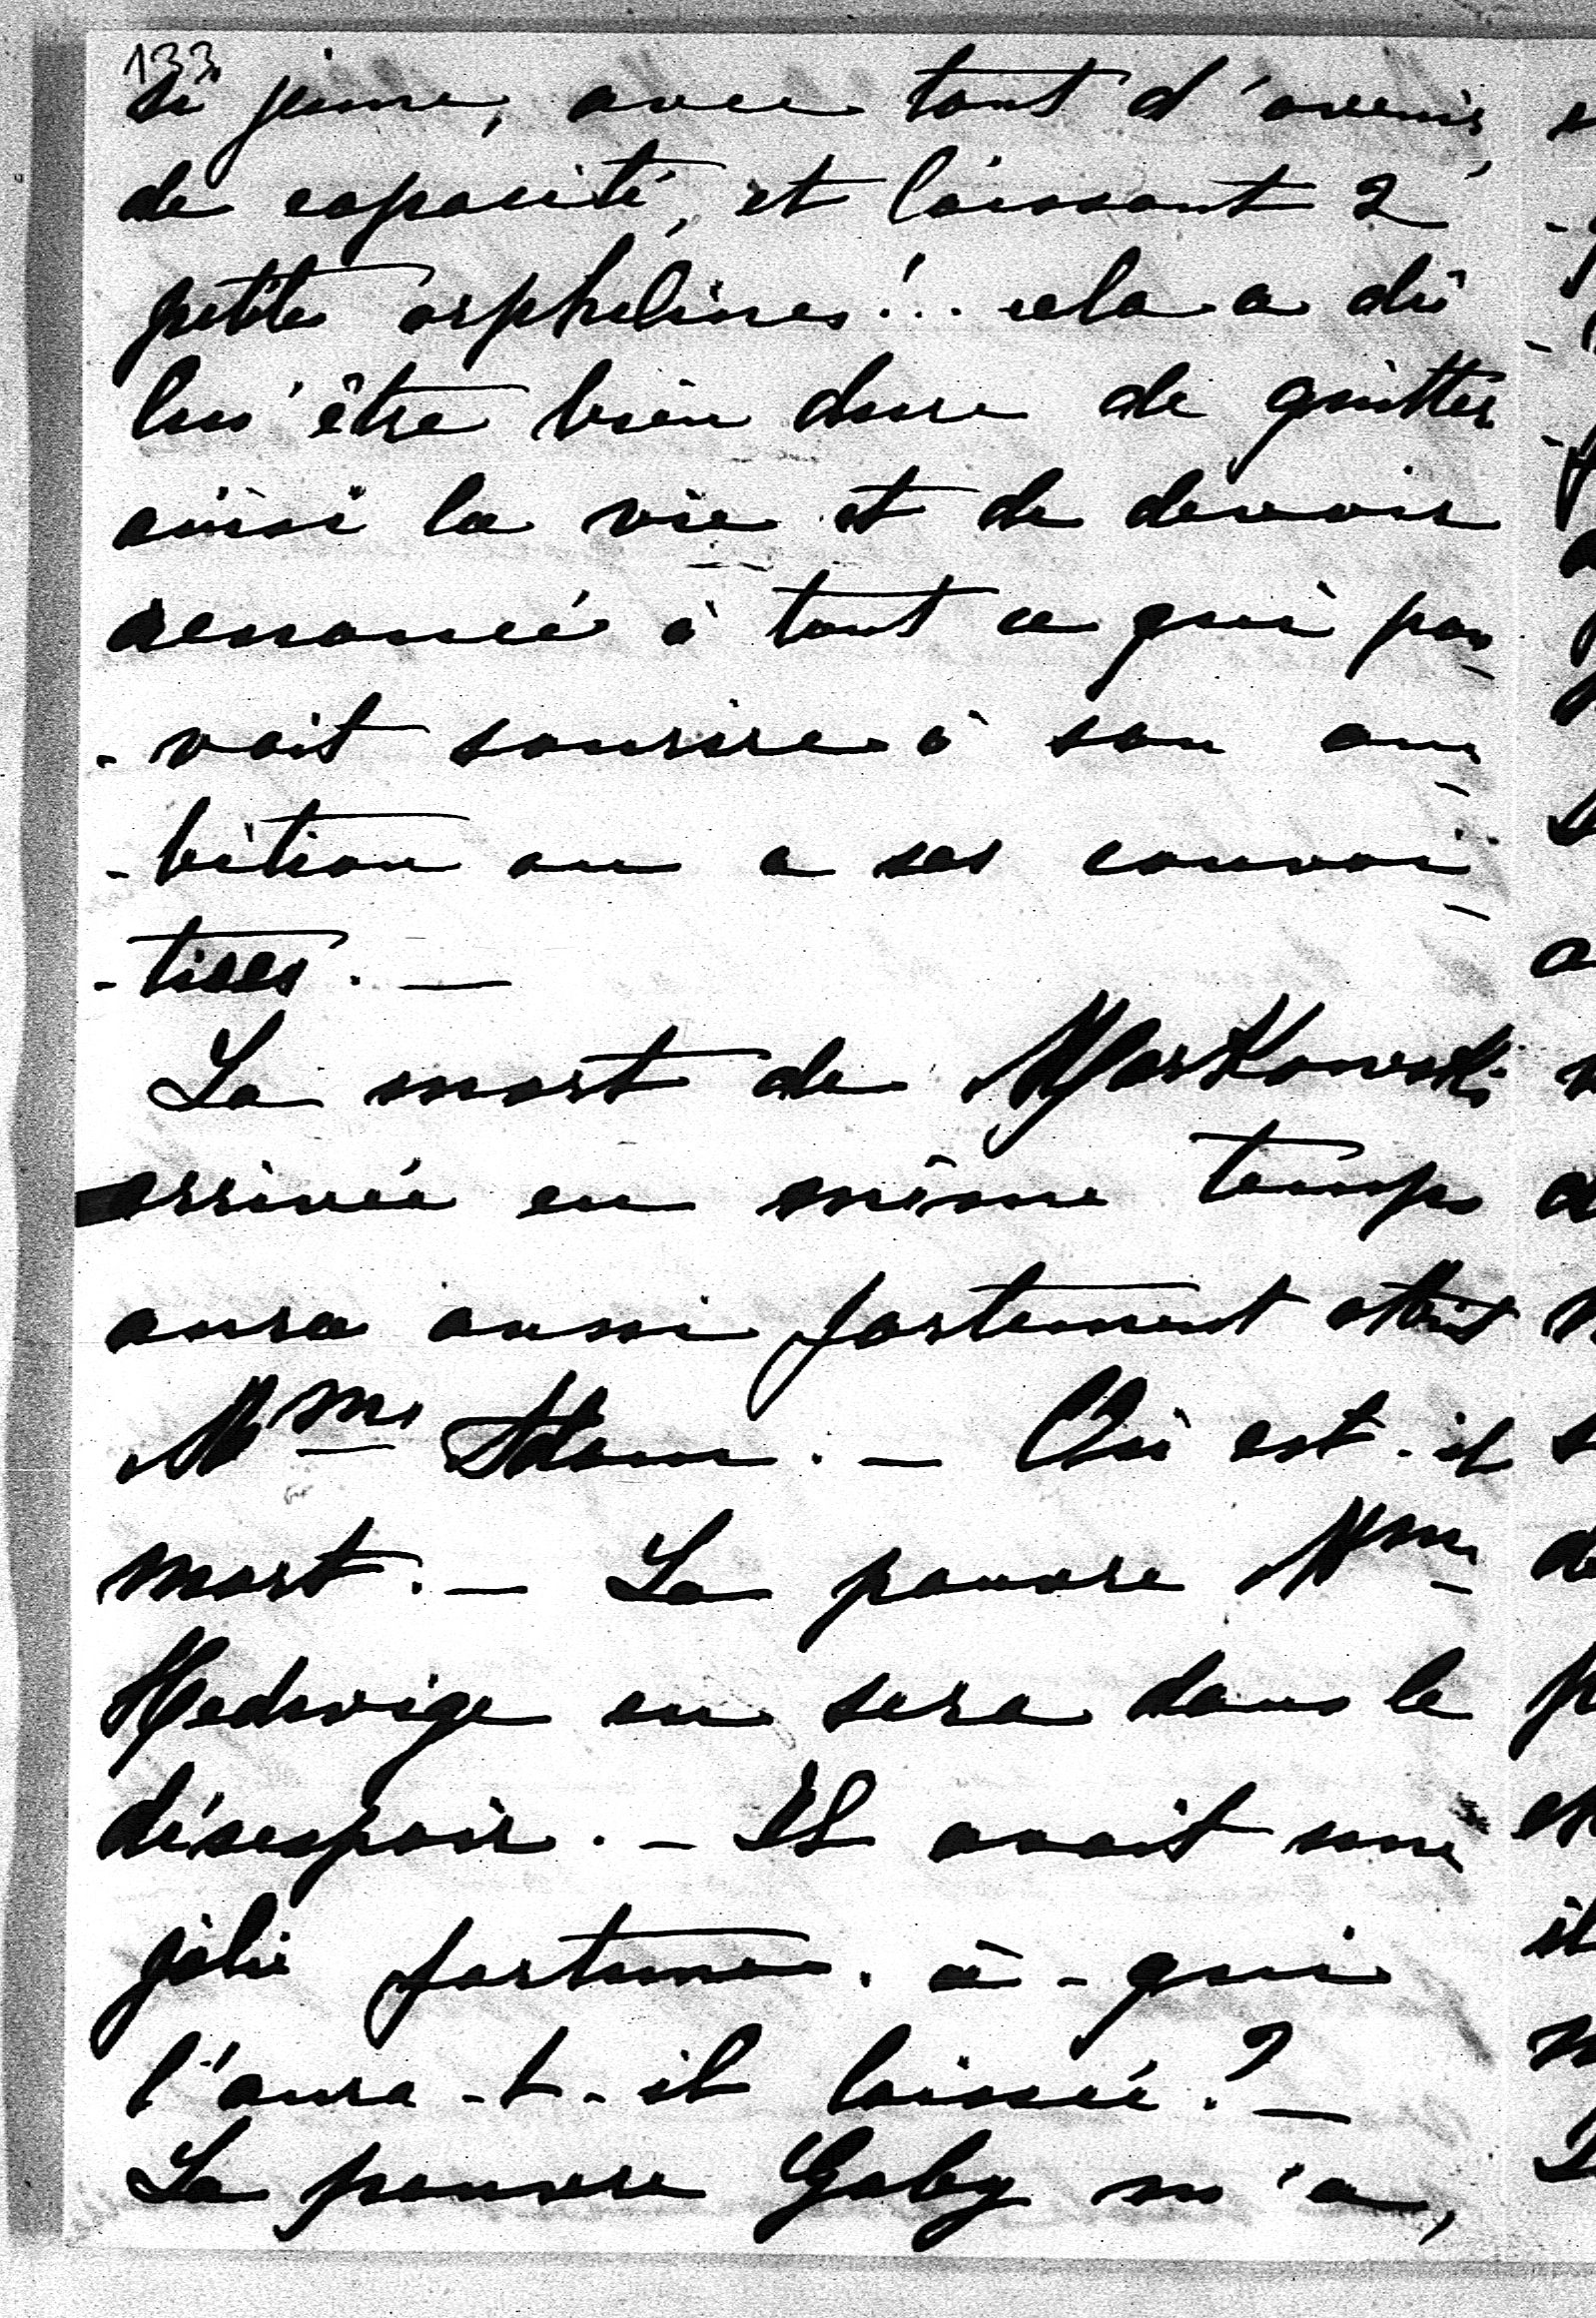 133
si jeune, avec tant d'avenir,
de capacité, et laissant 2
petites orphelines!.. cela a dû
lui être bien dure de quitter
ainsi la vie et de devoir
renoncé à tout ce qui pou-
-vait sourire à son am-
-bition ou a ses convoi-
-tises. —
La mort de Markowski
arrivée en même temps
aura aussi fortement atteint
Mme Adam. — Où est-il
mort. — La pauvre Mme
Hedwige en sera dans le
désespoir. — Il avait une
jolie fortune. à - qui
l'aura-t-il laissée? —
La pauvre Gaby m'a,